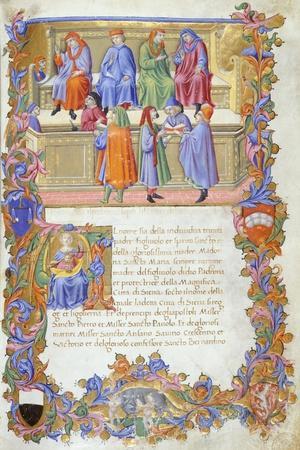 Al nome sia della individua trinita
padre figluolo et spirito sancto
della gloriosissima madre Mado
na Sancta Maria sempre vergine
madre del figluolo di dio Padrona
et protectrice della Magnifica
Citta di Siena sotto il nome della
quale la decta Citta si reg
ge et si governa Et de principi degli apostoli Misser
Sancto Pietro et Misser Sancto Pauolo Et de gloriosi
martiri Misser Sancto Ansano Savino Crescentio et
Victorio et del glorioso confessore Sancto Bernardino